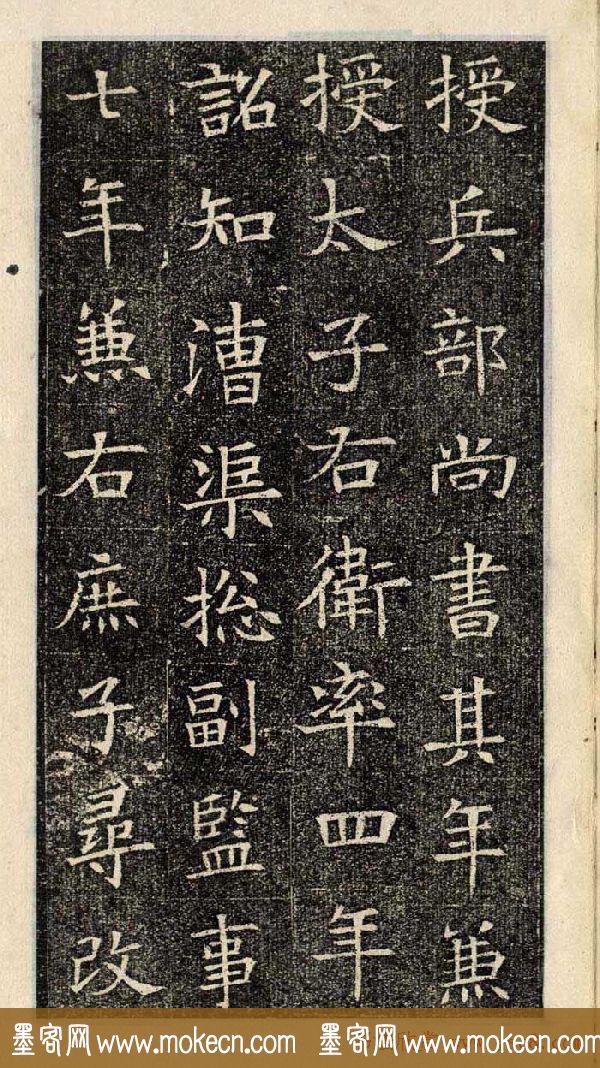 授兵部尚書其年兼
授太子右衛率四年
詔知漕渠捴副監事
七年兼右庶子尋改
墨客网 www.mokecn.com 墨客网 www.mokecn.com